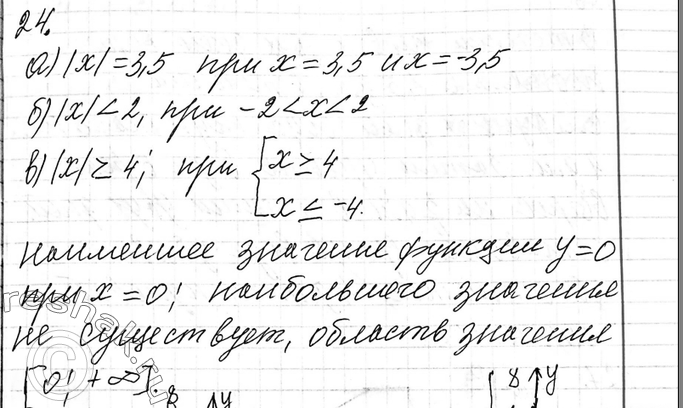 24.
а) |x| = 3,5 при x = 3,5 и x = -3,5
б) |x| < 2, при -2 < x < 2
в) |x| ≥ 4; при [x ≥ 4
x ≤ -4.
наименшее значение функции y = 0
при x = 0; наибольшего значения
не существует, область значения
[0; +∞].
8 y
8 y
reshak.ru
©